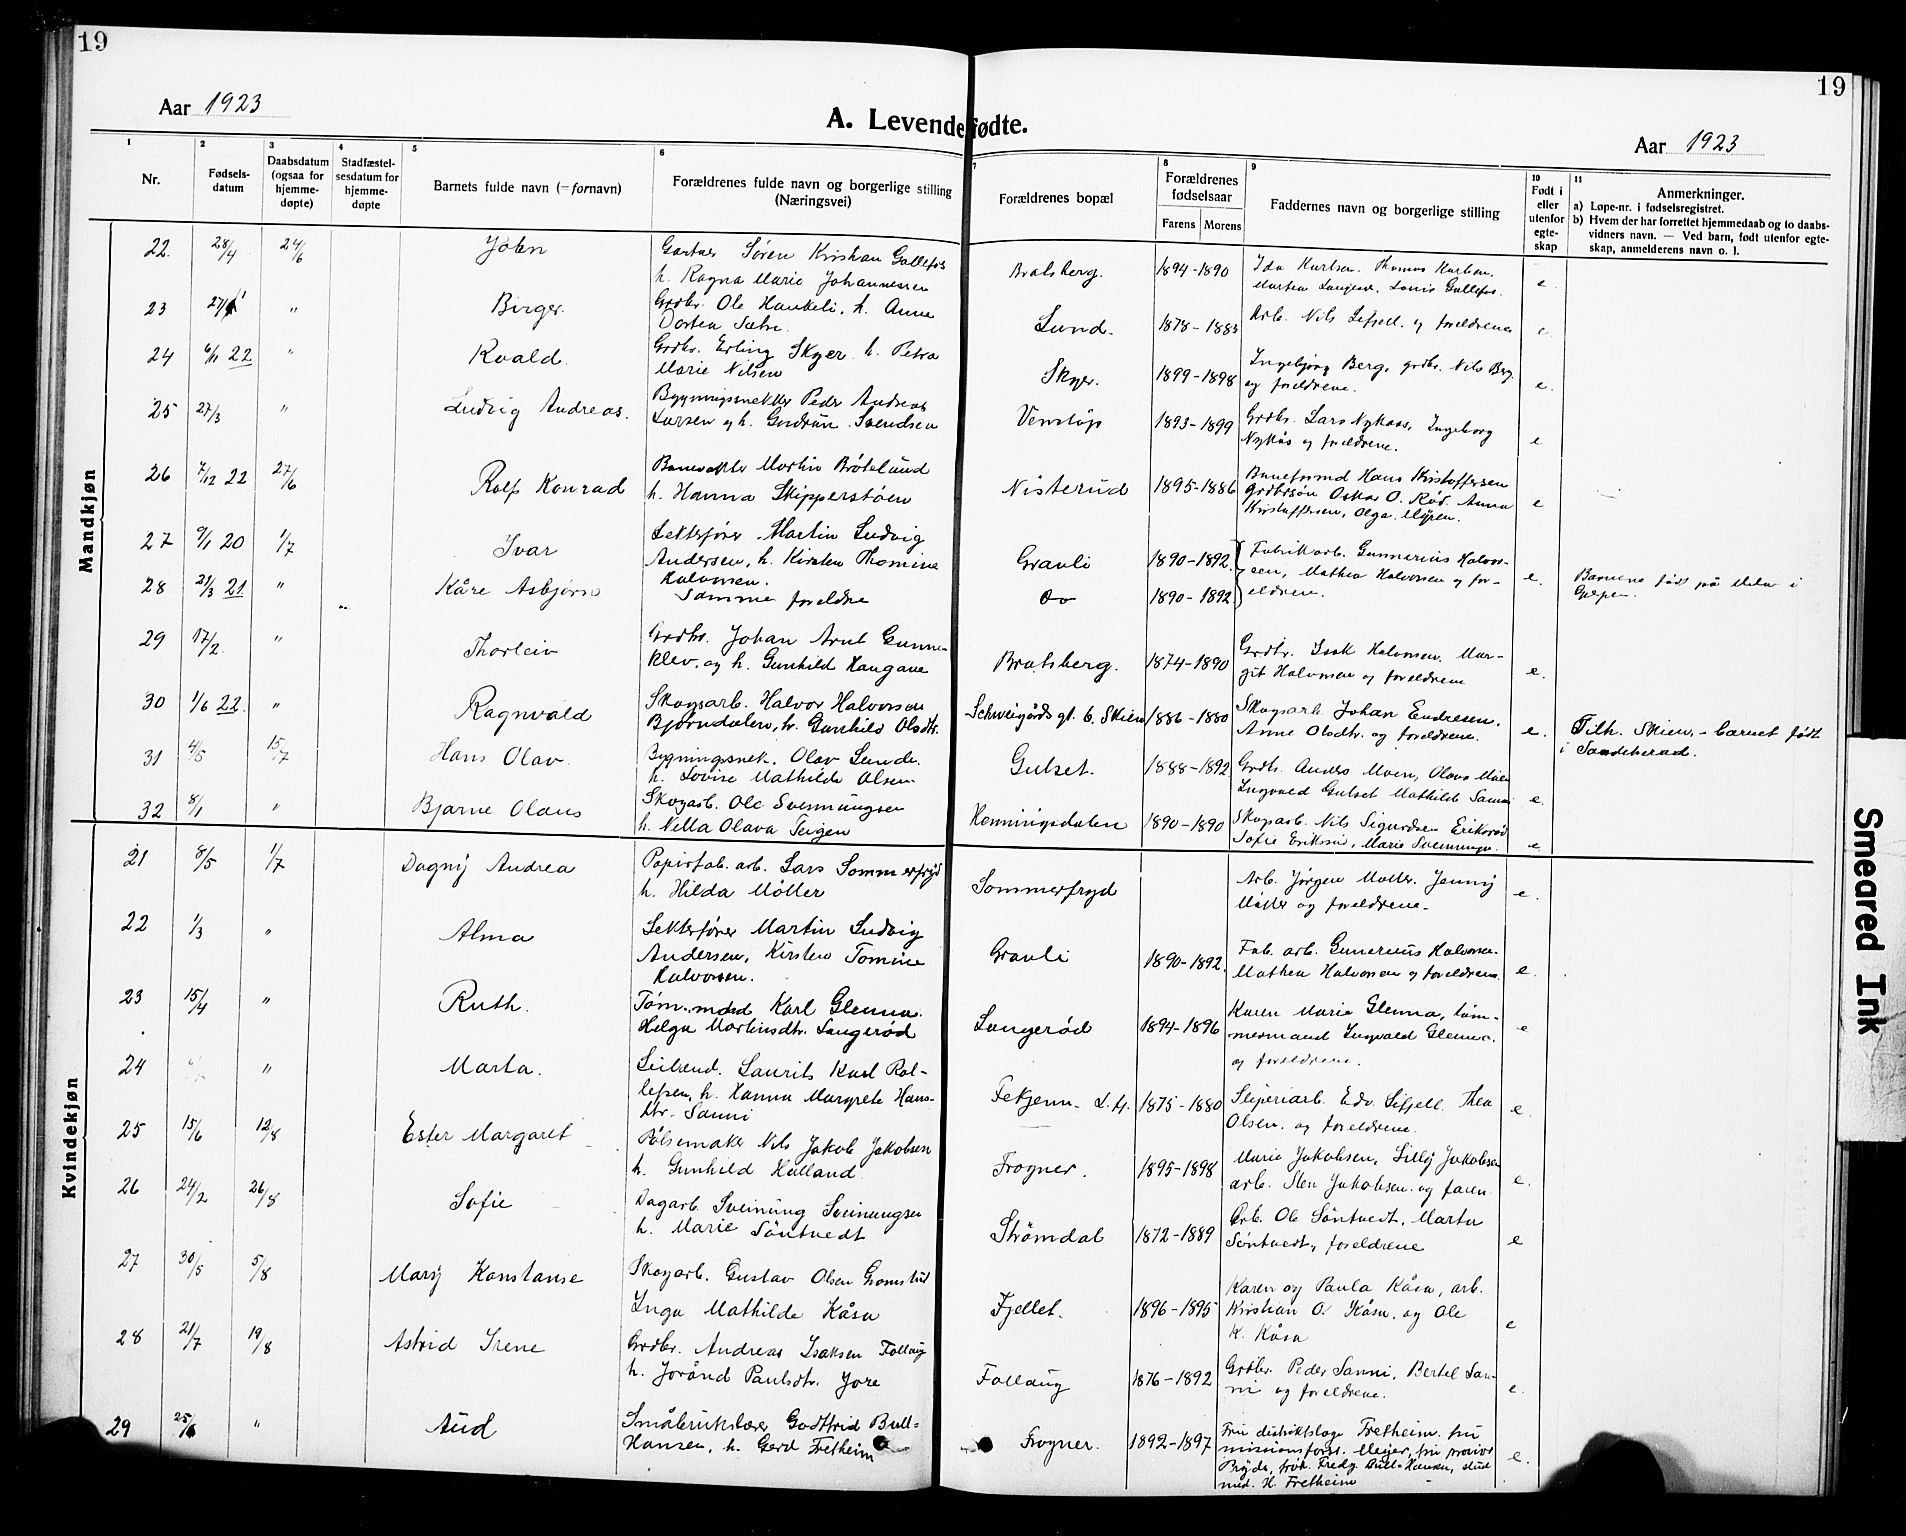 19
19
Aar 1923
A. Levendefødte.
Aar 1923
1
2
3
4
5
6
7
8
9
10
11
Nr.
Fødsels-
datum
Daabsdatum
(ogsaa for
hjemme-
døpte)
Stadfæstel-
sesdatum for
hjemme-
døpte
Barnets fulde navn (= fornavn)
Forældrenes fulde navn og borgerlige stilling
(Næringsvei)
Forældrenes bopæl
Forældrenes
fødselsaar
Farens
Morens
Faddernes navn og borgerlige stilling
Født i
eller
utenfor
egte-
skap
Anmerkninger.
a) Løpe-nr. i fødselsregistret.
b) Hvem der har forrettet hjemmedaab og to daabs-
vidners navn. — Ved barn, født utenfor egte-
skap, anmelderens navn o. l.
Mandkjøn
22. 28/4 24/6 John
Gartner Søren Kristian Gallefos
h. Ragna Marie Johannessen
Bratsberg. 1894-1890
Ida Karlsen. Thomas Karlsen.
Marten Langesd. Louis Gallefos.
e.
23 27/1 " Birger.
Grdbr. Ole Haukeli, h. Anne
Dortea Sætre.
Lund. 1878-1883
Arb. Nils Lifjell. og foreldrene
e.
24 6/11 22 " Roald.
Grdbr. Erling Skyer. h. Petra
Marie Nilsen
Skyer. 1899-1898
Ingebjørg Berg, grdbr. Nils Berg.
og foreldrene.
e.
25 27/3 " Ludvig Andreas.
Bygningssnekker Peder Andreas
Larsen og h. Gudrun Svendsen
Venstøp 1893-1899
Grdbr. Lars Nykaas, Ingeborg
Nykås og foreldrene.
e
26 7/12 22 27/6 Rolf Konrad
Banevokter Martin Brøtelund
h. Hanna Skipperstøen
Nisterud 1895-1886
Baneformd Hans Kristoffersen
grdbrsøn Oskar O. Rød. Anna
Kristoffersen, Olga Myren.
e
27 9/1 20 1/7 Ivar
Lekterfører Martin Ludvig
Andersen, h. Kirsten Thomine
Halvorsen.
Graali 1890-1892.
Fabrikarb. Gunnerius Halvor-
sen, Mathea Halvorsen og for-
eldrene.
e.
Barnene født på Melum i
Gjerpen.
28 21/3 21 " Kåre Asbjørn
Samme foreldre
Do 1890-1892
29 17/2. " Thorleiv
Grdbr. Johan Arnt Gunne-
klev. og h. Gunhild Haugane
Bratsberg. 1874-1890
Grdbr. Isak Halvorsen. Mar-
git Halvorsen og foreldrene
e.
30 1/6 22. " Ragnvald
Skogsarb. Halvor Halvorsen
Bjørndalen, h. Gunhild Olsdtr.
Schweigårds gt. 6. Skien 1886-1880
Skogsarb. Johan Endresen.
Anne Olsdtr. og foreldrene.
e.
Tilh. Skien, - barnet født
i Sandeherad.
31 4/5 15/7 Hans Olav.
Bygningssnek. Olav Lende.
h. Lovise Mathilde Olsen.
Gulset. 1888-1892
Grdbr. Anders Moen, Olava Moen
Ingvald Gulset Mathilde
32 8/1 " Bjarne Olaus
Skogarb. Ole Svennungsen
h. Nella Olava Teigen
Henningsdalen 1890-1890
Skogsarb. Nils Sigurdsen Eriksrød
Sofie Eriksrød, Marie Svennungs.
e.
Kvindekjøn
21 8/5 1/7 Dagny Andrea
Papirfab. arb. Lars Sommerfryd
h. Hilda Møller
Sommerfryd
Arb. Jørgen Møller. Jenny
Møller og foreldrene.
e.
22 1/3 " Alma
Lekterfører Martin Ludvig
Andersen, Kirsten Tomine
Halvorsen.
Graali 1890-1892.
Fab. arb. Gunerius Halvorsen.
Mathea Halvorsen og foreldrene.
e.
23 15/4 " Ruth.
Tøm.mand Karl Glenna.
Helga Martinsdtr. Langerød
Langerød 1894-1896
Karen Marie Glenna, tøm-
mermand Ingvald Glenna.
og foreldrene.
e
24 " Marta.
Laurits Karl Rol-
lefsen, h. Hanna Margrete Hans-
dtr. Sanni
Fekjenn L.H. 1875-1880
Sliperiarb. Edv. Lifjell. Thea
Olsen. og foreldrene.
e.
25 15/6 12/8 Ester Margaret
Pølsemaker Nils Jakob Jakobsen
h. Gunhild Halland.
Frogner. 1895-1898
Marie Jakobsen, Lilly Jakobsen
arb. Sten Jakobsen. og faren
e.
26 24/2 26/8 Sofie
Dagarb. Sveinung Sveinungsen
h. Marie Søntvedt
Strømdal 1872-1889
Arb. Ole Søntvedt, Marta
Søntvedt, foreldrene
e
27 30/5 5/8 Mary Konstanse
Skogarb. Gustav Olsen Gromstul
Inga Mathilde Kåsa
Fjellet. 1896-1895
Karen og Paula Kåsa, arb.
Kristian O. Kåsa. og Ole
K. Kåsa
e
28 21/7 19/8 Astrid Irene
Grdbr. Andreas Isaksen Follaug
h. Jorånd Paulsdtr. Jore
Follaug 1876-1892
Grdbr. Peder Sanni, Bertel San-
ni og foreldrene.
e.
29 25/6 " Aud
Småbrukslærer Godtfrid Bull-
Hansen, h. Gerd Fretheim
Frogner. 1892-1897
Fru distriktslæge Fretheim. fru
missionsforst. Meyer, fru
Bryde, frøk. Fredy Bull-Hansen, stud
med. H. Fretheim
e.
Smeared Ink